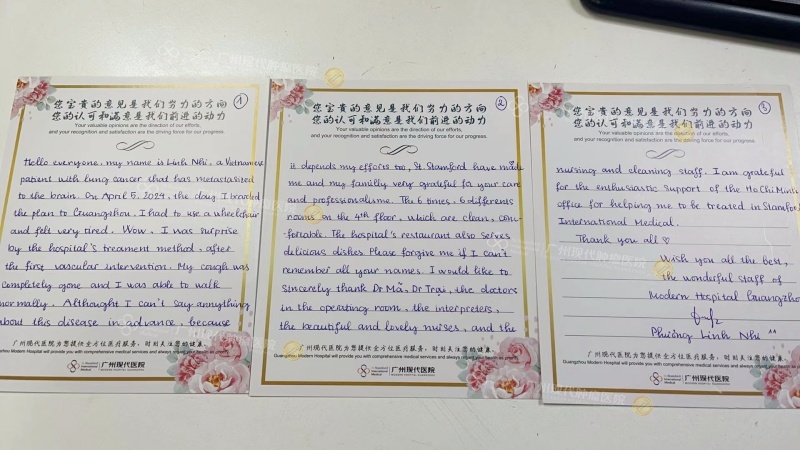 您宝贵的意见是我们努力的方向
您的认可和满意是我们前进的动力
Your valuable opinions are the direction of our efforts,
and your recognition and satisfaction are the driving force for our progress.
1
Hello everyone, my name is Linh Nhi, a Vietnamese
patient with lung cancer that has metastasised
to the brain. On April 5, 2024, the day I boarded
the plan to Guangzhou, I had to use a wheelchair
and felt very tired. Wow, I was surprise
by the hospital's treament method, after
the first vascular intervention. My cough was
completely gone and I was able to walk
normally. Althought I can't say annything
about this disease in advance, because
广州现代医院为您提供全方位医疗服务,时刻关注您的健康。
Guangzhou Modern Hospital will provide you with comprehensive medical services and always
St. Stamford International Medical
广州现代医院
MODERN HOSPITAL GUANGZHOU
您宝贵的意见是我们努力的方向
您的认可和满意是我们前进的动力
Your valuable opinions are the direction of our efforts,
and your recognition and satisfaction are the driving force for our progress.
2
it depends my efforts too, St. Stamford have made
me and my familly very grateful for your care
and professionalisme. The 6 times, 6 differents
rooms on the 4th floor, which are clean, com-
fortable. The hospital's restaurant also serves
delicious dishes. Please forgive me if I can't
remember all your names. I would like to
sincerely thank Dr Mã, Dr Trại, the doctors
in the operating room, the interpreters,
the beautiful and lovely nurses, and the
广州现代医院为您提供全方位医疗服务,时刻关注您的健康。
Guangzhou Modern Hospital will provide you with comprehensive medical services and always
St. Stamford International Medical
广州现代医院
MODERN HOSPITAL GUANGZHOU
您宝贵的意见是我们努力的方向
您的认可和满意是我们前进的动力
Your valuable opinions are the direction of our efforts,
and your recognition and satisfaction are the driving force for our progress.
3
nursing and cleaning staff. I am grateful
for the enthusiastic support of the Ho Chi Minh
office for helping me to be treated in Stamford
International Medical.
Thank you all
Wish you all the best,
the wonderful staff of
Modern Hospital Guangzhou
Phương Linh Nhi ^^
广州现代医院为您提供全方位医疗服务,时刻关注您的健康。
Guangzhou Modern Hospital will provide you with comprehensive medical services and always
St. Stamford International Medical
广州现代医院
MODERN HOSPITAL GUANGZHOU
广州现代肿瘤医院